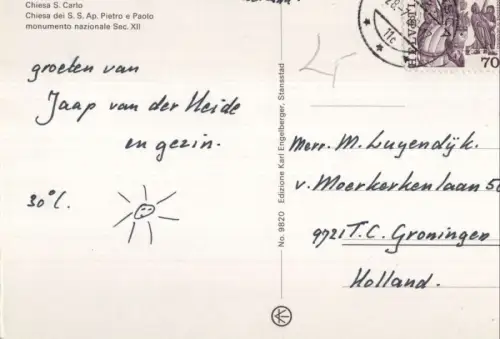 Chiesa S. Carlo
Chiesa dei S. S. Ap. Pietro e Paolo
monumento nazionale Sec. XII
groeten van
Jaap van der Heide
en gezin.
30°C.
No. 9820 Edizione Karl Engelberger, Stansstad
HELVETIA
70
Merr. M. Luyendijk.
v. Moerkerkenlaan 50
9721 T.C. Groningen
Holland.